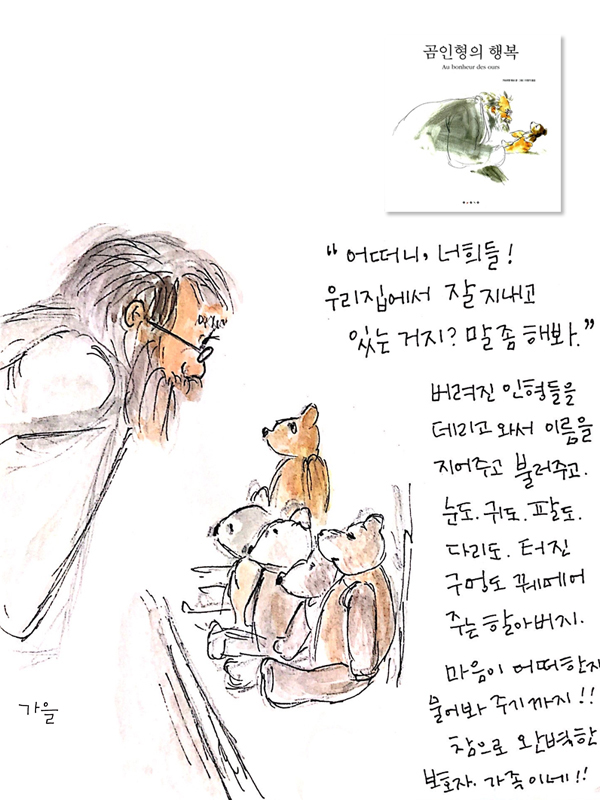 곰인형의 행복
Au bonheur des ours
“어떠니, 너희들!
우리집에서 잘 지내고
있는 거지? 말좀 해봐.”
버려진 인형들을
데리고 와서 이름을
지어주고 불러주고.
눈도. 귀도. 팔도.
다리도. 터진
구멍도 꿰메어
주는 할아버지.
마음이 어떠한지
물어봐 주기까지!!
참으로 완벽한
보호자. 가족이네!!
가을